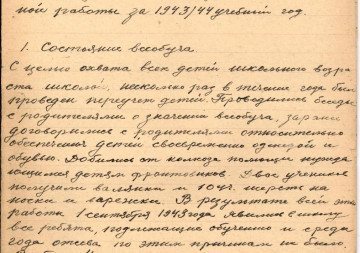 ной работы за 1943/44 учебный год.
1. Состояние всеобуча
С целью охвата всех детей школьного возра
ста школой, несколько раз в течение года был
проведен переучет детей. Проводились беседы
с родителями о значении всеобуча, заранее
договорились с родителями относительно
обеспечения детей своевременно одеждой и
обувью. Добились от колхоза помощи нужда
ющимся детям фронтовиков. Двое учеников
получили валянки и 10 чл. шерсть на
носки и варежки. В результате всей этой
работы 1 сентября 1943 года явились в школу
все ребята, подлежащие обучению и среди
года отсева по этим причинам не было.